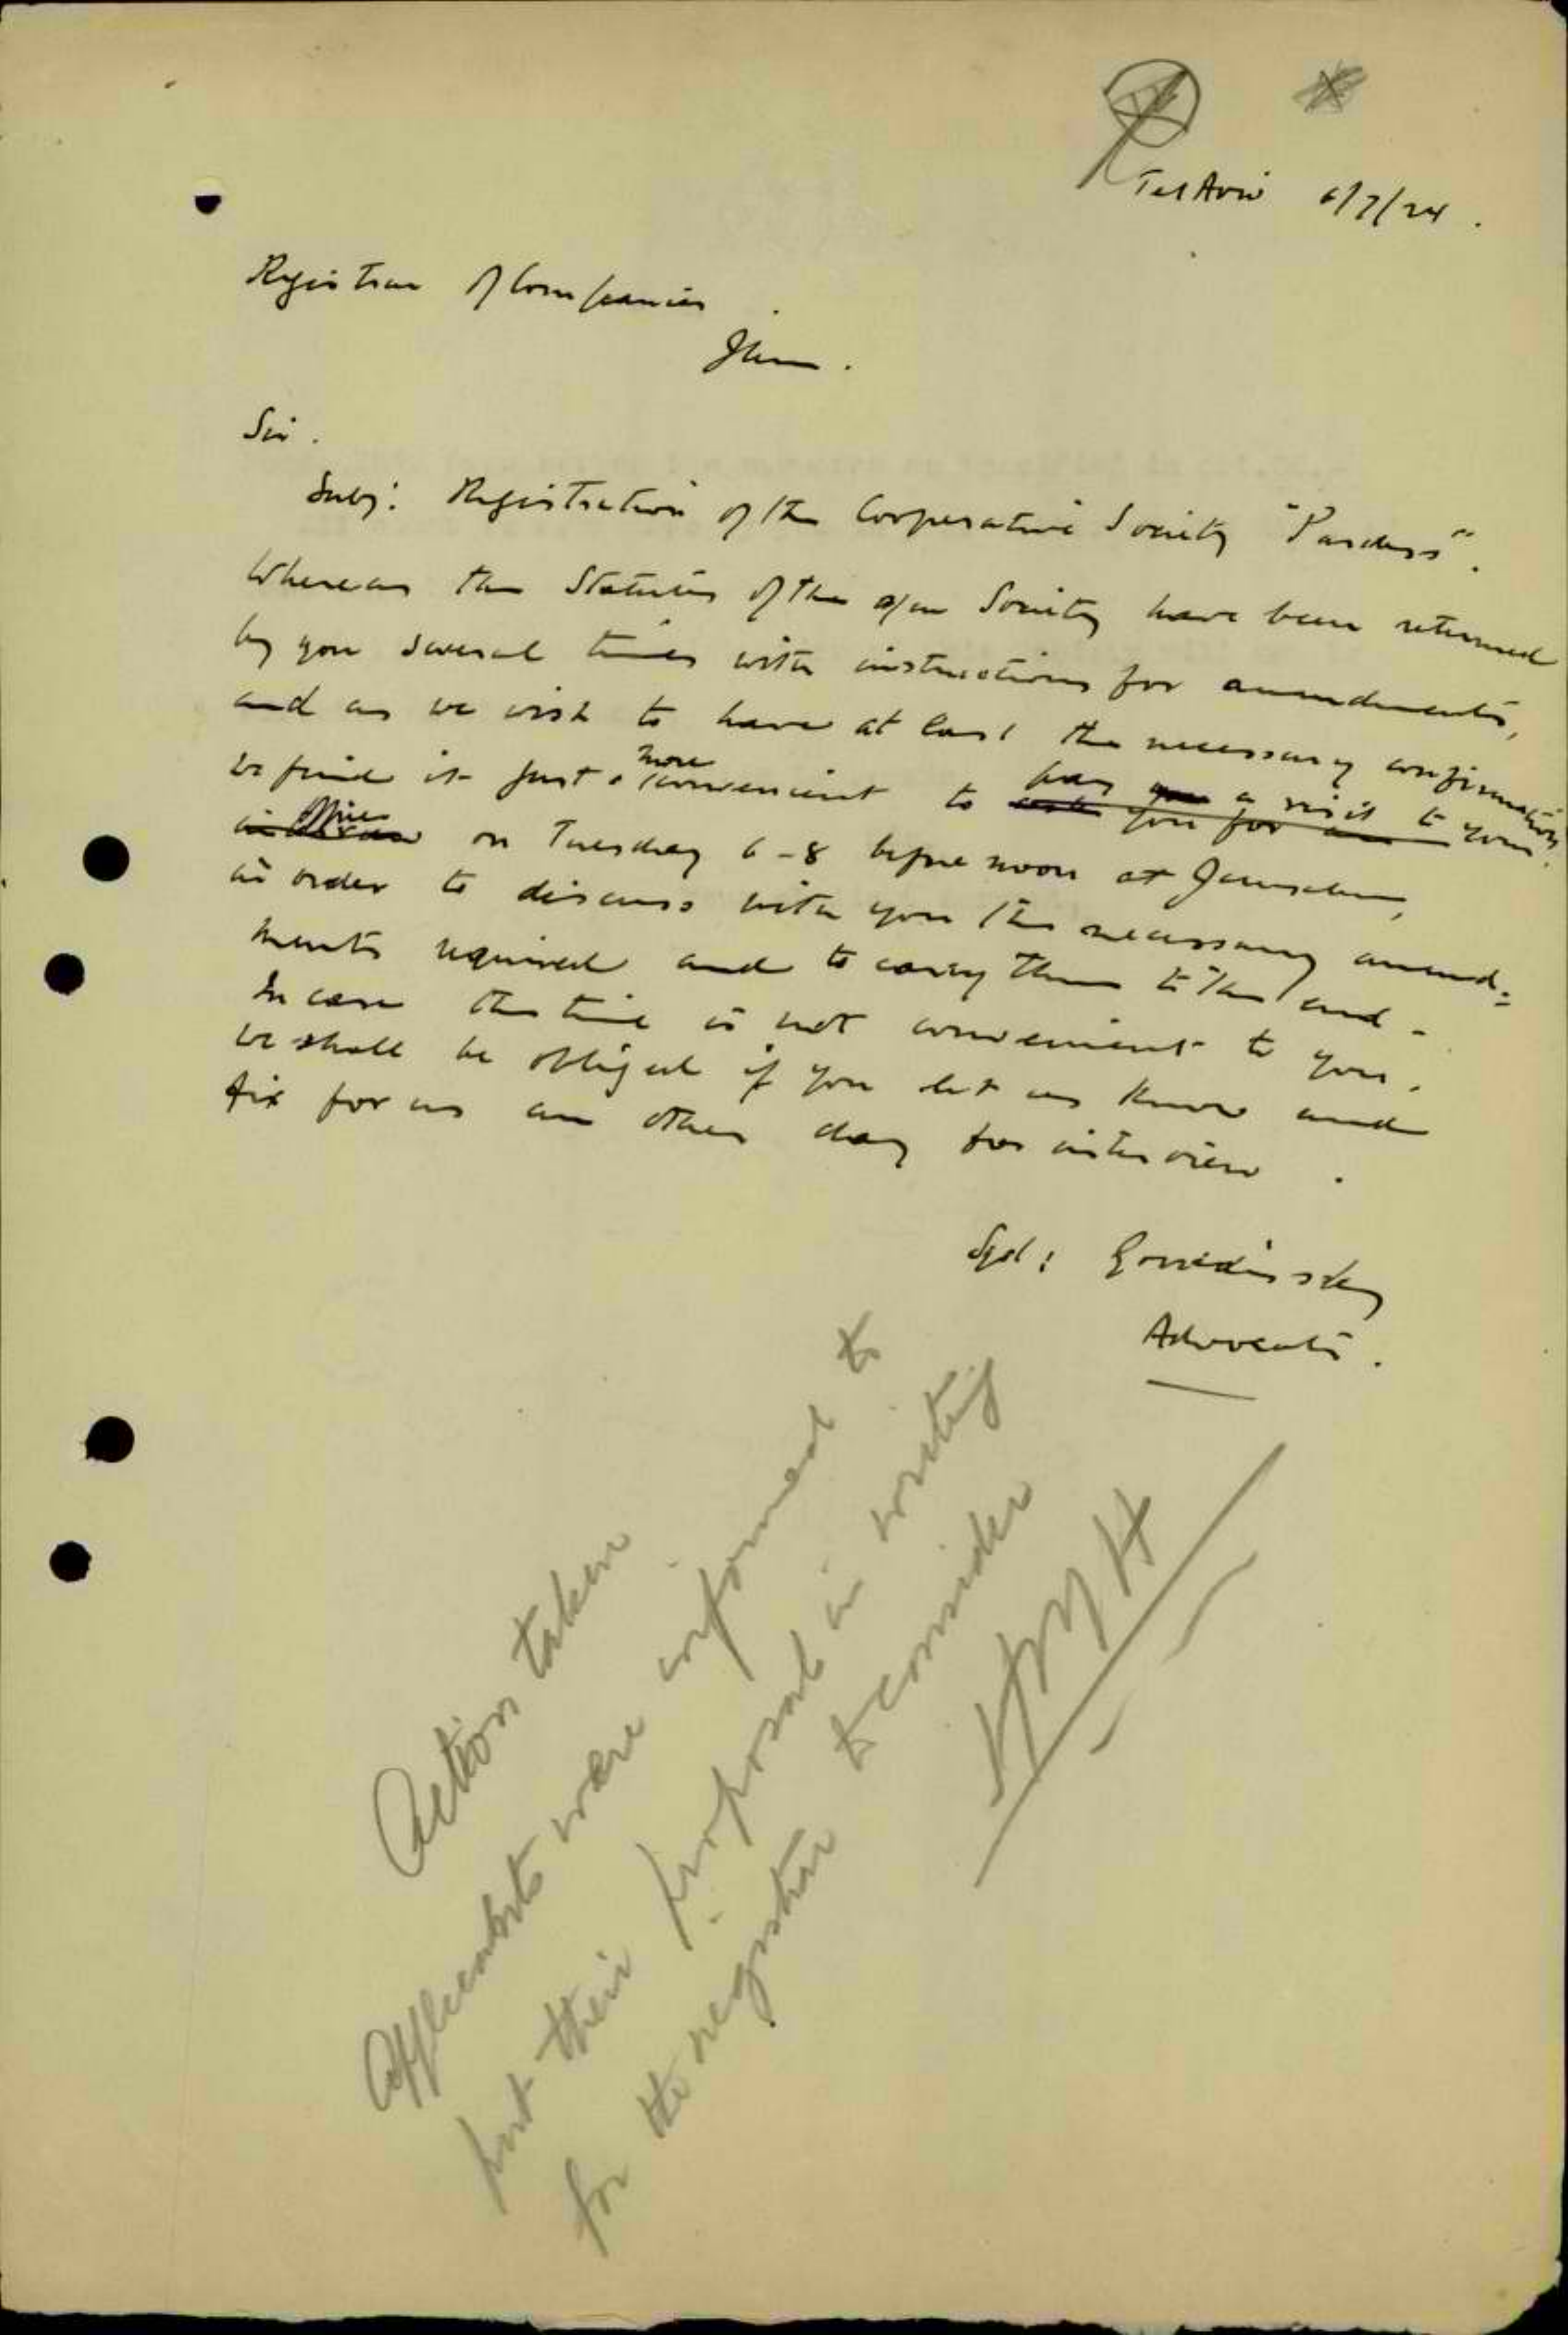 Tel Aviv 6/7/24.
Registrar of Companies
Jlem.
Sir.
Subj: Registration of the Cooperative Society "Pardess".
Whereas the Statutes of the a/m Society have been returned
by you several times with instructions for amendments,
and as we wish to have at last the necessary confirmation
we find it just more convenient to pay a visit to your
Office on Tuesday 6-8 before noon at Jerusalem,
in order to discuss with you the necessary amend=
ments required and to carry them to the end.
In case the time is not convenient to you.
we shall be obliged if you let us know and
fix for us an other day for interview.
Sgd:
Advocate.
Action taken
Applicants were informed to
put their proposal in writing
for the registrar to consider